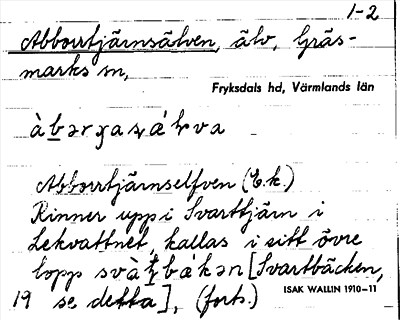 1-2
Abborrtjärnsälven, älv, Gräs-
marks sn,
Fryksdals hd, Värmlands län
Abborrtjärnselfven (E.k.)
Rinner upp i Svarttjärn i
Lekvattnet, kallas i sitt övre
lopp [Svartbäcken,
19 se detta], (forts.)
ISAK WALLIN 1910-11